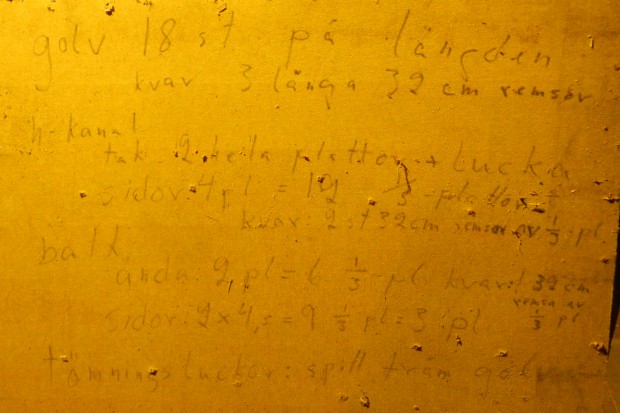 golv 18 st på längden
kvar 3 långa 32 cm remsor
h-kanal
tak 2 hela plattor + Lucka
sidor: 4 pl = 12 1/3-plattor
kvar: 2 st 32cm remsor av 1/3 pl
balk
ända: 2 pl = 6 1/3 pl kvar: 32 cm
remsa av
1/3 pl
sidor: 2 x 4,5 = 9 1/3 pl = 3 pl
tömningsluckor: spill från golv